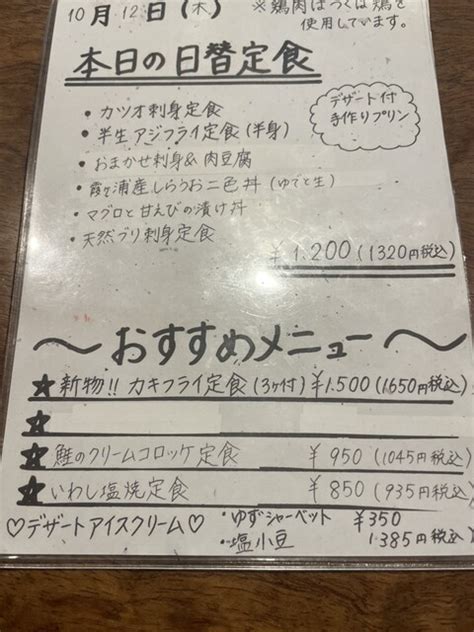 10月12日(木)
※鶏肉はつくば鶏を
使用しています。
本日の日替定食
デザート付
手作りプリン
• カツオ刺身定食
• 半生アジフライ定食(半身)
• おまかせ刺身&肉豆腐
• 霞ヶ浦産しらうお二色丼(ゆでと生)
• マグロと甘えびの漬け丼
• 天然ブリ刺身定食
¥1.200(1320円税込)
〜おすすめメニュー〜
★新物!! カキフライ定食(3ヶ付) ¥1.500(1650円税込)
★
★鮭のクリームコロッケ定食 ¥950(1045円税込)
★いわし塩焼定食 ¥850(935円税込)
♡デザートアイスクリーム♡ ・ゆずシャーベット ¥350
・塩小豆 385円税込)